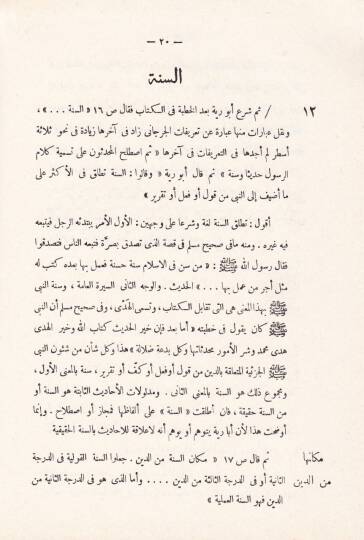 — ٢٠ —
السنة
١٢ / ثم شرع أبو رية بعد الخطبة فى الكتاب فقال ص ١٦ « السنة ... » ،
ونقل عبارات منها عبارة عن تعريفات الجرجانى زاد فى آخرها زيادة فى نحو ثلاثة
أسطر لم أجدها فى التعريفات فى آخرها « ثم اصطلح المحدثون على تسمية كلام
الرسول حديثا وسنة » ثم قال أبو رية « وقالوا : السنة تطلق فى الأكثر على
ما أضيف إلى النبى من قول أو فعل أو تقرير »
أقول : تطلق السنة لغة وشرعا على وجهين : الأول الأمر يبتدئه الرجل فيتبعه
فيه غيره . ومنه مافى صحيح مسلم فى قصة الذى تصدق بصرَّة فتبعه الناس فتصدقوا
فقال رسول الله ﷺ : « من سن فى الاسلام سنة حسنة فعمل بها بعده كتب له
مثل أجر من عمل بها ... » الحديث . والوجه الثانى السيرة العامة ، وسنة النبى
ﷺ بهذا المعنى هى التى تقابل الكتاب ، وتسمى الهَدْى ، وفى صحيح مسلم أن النبى
ﷺ كان يقول فى خطبته « أما بعد فإن خير الحديث كتاب الله وخير الهدى
هدى محمد وشر الأمور محدثاتها وكل بدعة ضلالة » هذا وكل شأن من شئون النبى
ﷺ الجزئية المتعلقة بالدين من قول أوفعل أو كفّ أو تقرير ، سنة بالمعنى الأول ،
ومجموع ذلك هو السنة بالمعنى الثانى . ومدلولات الأحاديث الثابتة هو السنة أو
من السنة حقيقة ، فإن أطلقت « السنة » على ألفاظها فمجاز أو اصطلاح . وإنما
أوضحت هذا لأن أبا رية يتوهم أو يوهم أنه لاعلاقة للاحاديث بالسنة الحقيقية
مكانها ثم قال ص ١٧ « مكان السنة من الدين . جعلوا السنة القولية فى الدرجة
من الدين الثانية أو فى الدرجة الثالثة من الدين .... وأما الذى هو فى الدرجة الثانية من
الدين فهو السنة العملية »